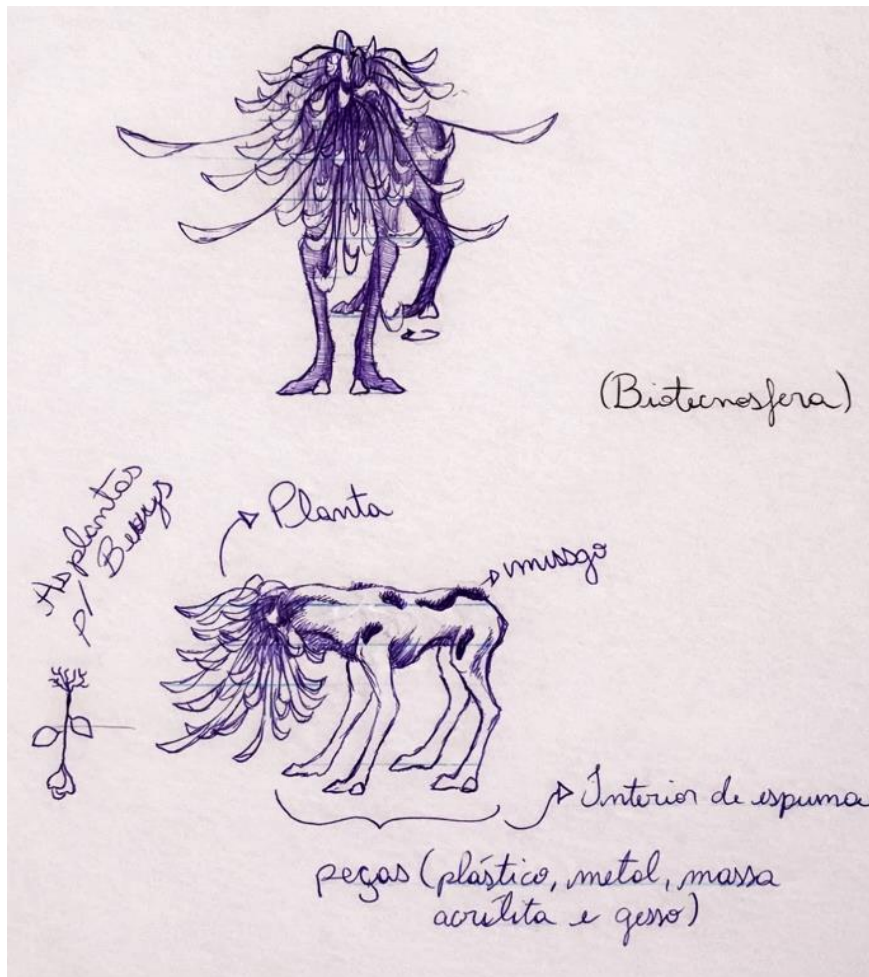 (Biotecnosfera)
As plantas
p/ Bexys
Planta
musgo
Interior de espuma
peças (plástico, metal, massa
acrílita e gesso)